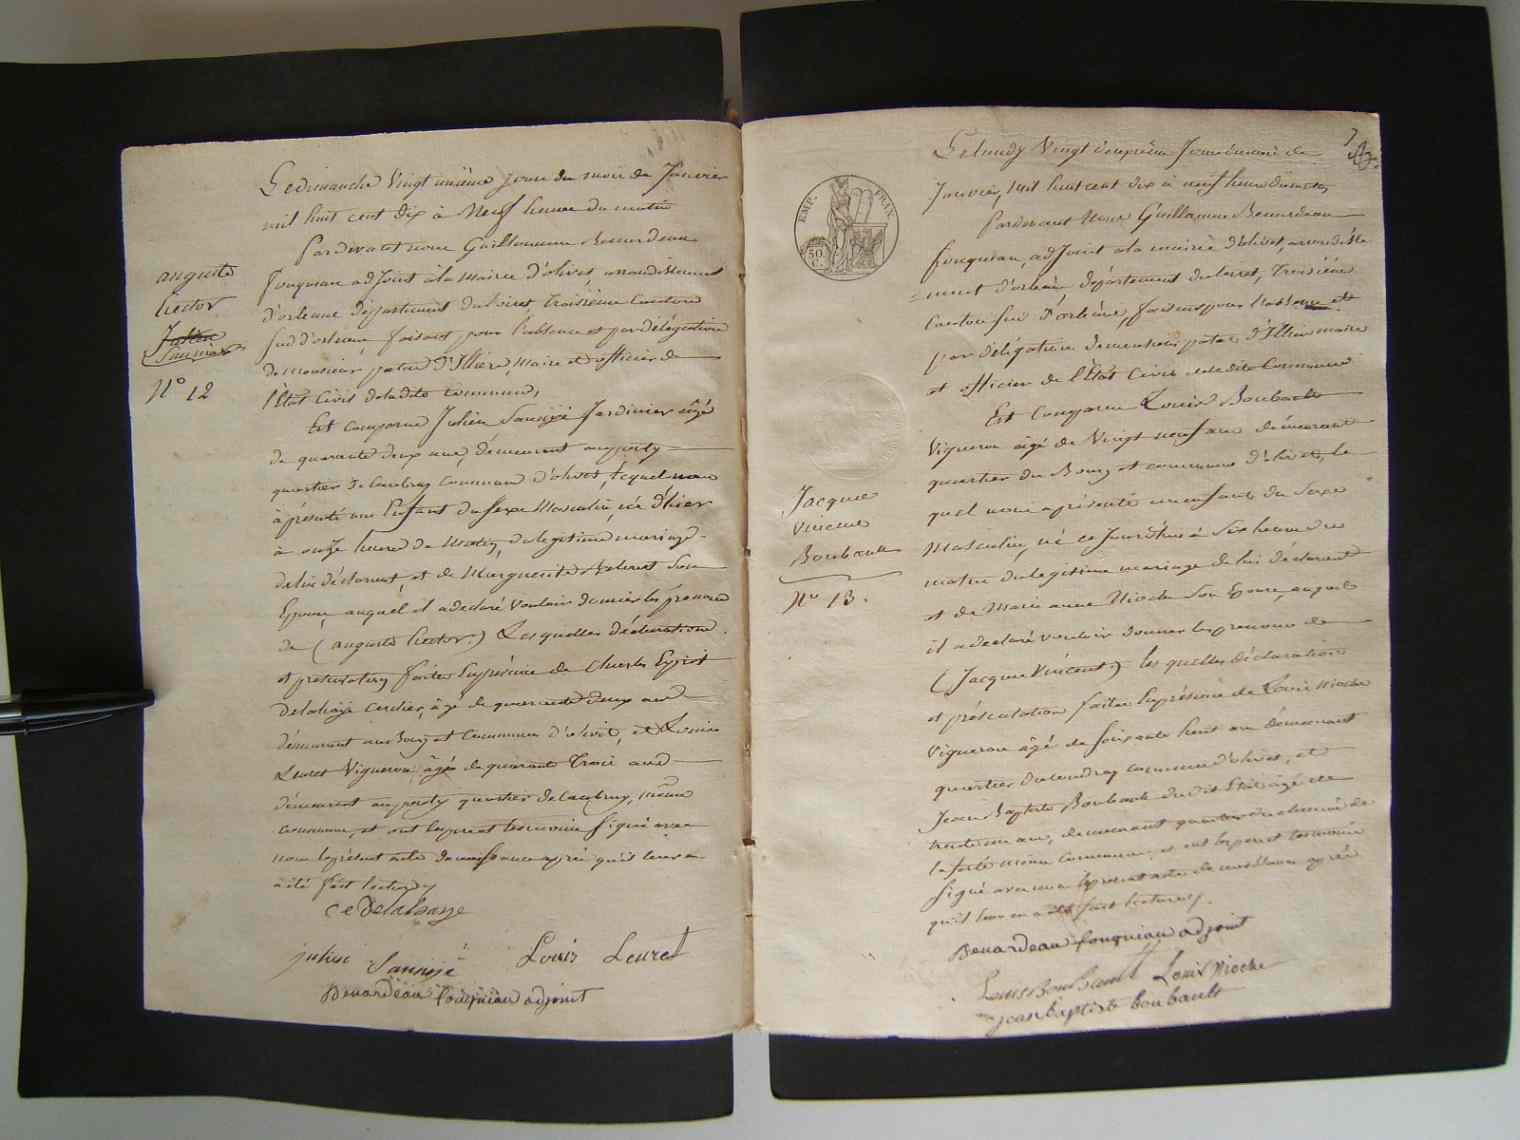 auguste
hector
Julien
Sauvajé
N° 12
Le dimanche vingt unième jour du mois de Janvier
mil huit cent dix à neuf heures du matin
Pardevant nous Guillaume Benardeau
fouqueau adjoint à la mairie d'olivet, arrondissement
d'orleans département du loiret, troisième canton
sud d'orleans faisant pour l'absence et par délégation
de monsieur patas d'Illiers, maire et officier de
l'État Civil de ladite commune,
Est comparu Julien Jardinier âgé
de quarante deux ans, demeurant au
quartier de commune d'olivet, lequel nous
à présenté un Enfant du sexe Masculin, né d'hier
à onze heures du matin, du legitime mariage
de lui déclarant, et de Marguerite son
Epouse, auquel il a déclaré vouloir donner les prenoms
de (auguste hector.) Lesquelles déclaration
et présentation faites En présence de Charles
Delahaye cerclier, âgé de quarante deux ans
démeurant au Bourg et commune d'olivet, et Louis
Leuret Vigneron, âgé de quarante trois ans
démeurant au quartier de même
commune, et ont les pere et temoins signé avec
nous le présent acte de naissance après qu'il leur en
a été fait lecture
ce Delahaye
julien Louis Leuret
Benardeau fouquiau adjoint
EMP. FRAN.
50
C.
Jacque
Vincent
Boubault
N° 13.
7
Le lundy vingt deuxième Jour du mois de
Janvier, mil huit cent dix à neuf heures du matin
Pardevant Nous Guillaume Benardeau
fouquiau, adjoint à la mairie d'olivet, arrondisse
ment d'orléans, département du loiret, troisième
Canton sud d'orléans, faisant pour l'absence et
par délégation de monsieur patas d'Illiers maire
et officier de l'État Civil de ladite Commune
Est Comparu Louis Boubault
Vigneron âgé de Vingt neuf ans démeurant
quartier du Bourg et commune d'olivet, le
quel nous a présenté un enfant du Sexe
Masculin, né ce Jourd'hui à Six heures du
matin du legitime mariage de lui déclarant
et de Marie anne Nioche son Epouse, auquel
il a déclaré vouloir donner les prenoms de
(Jacque Vincent) les quelles déclaration
et présentation faites En présence de Louis Nioche
Vigneron âgé de soixante huit ans démeurant
quartier du coudray commune d'olivet, et
Jean Baptiste Boubault âgé de
trente un ans, demeurant quartier de
même Commune, et ont les pere et temoins
signé avec nous le present acte de naissance après
qu'il leur en a été fait lecture.
Benardeau fouquiau adjoint
Louis Boubault Louis Nioche
jean baptiste boubault